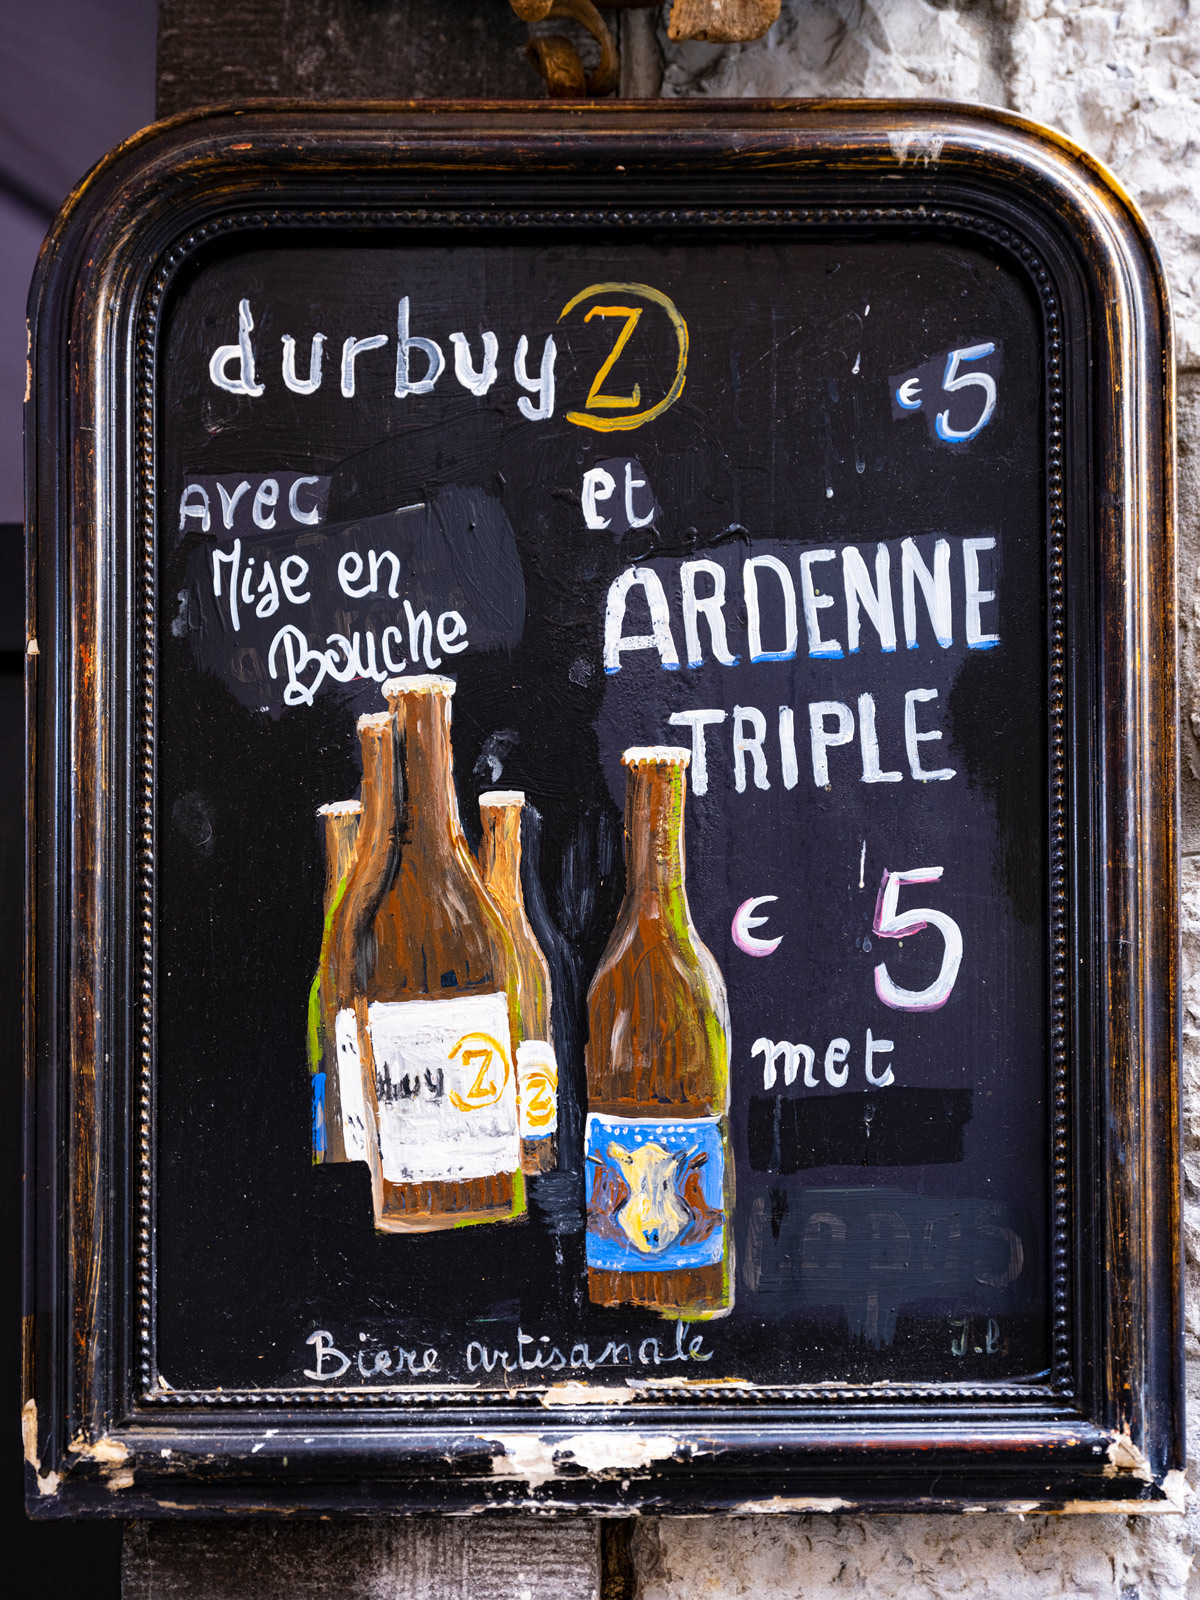 durbuy Z
€ 5
avec
Mise en
Bouche
et
ARDENNE
TRIPLE
€ 5
met
buy Z
Z
Bière artisanale
J.P.